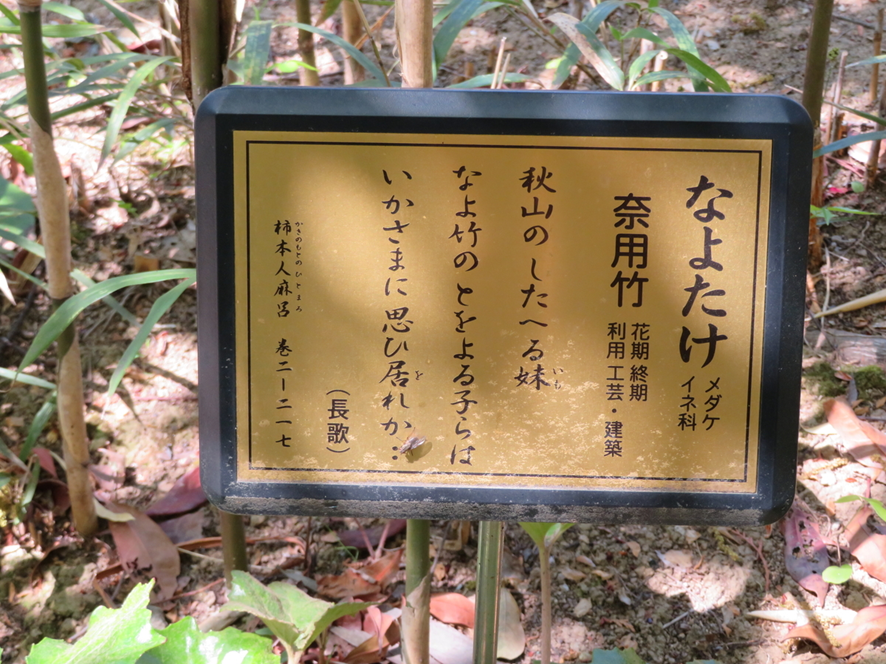 なよたけ
メダケ
イネ科
奈用竹
花期終期
利用工芸・建築
秋山のしたへる妹
いも
なよ竹のとをよる子らは
いかさまに思ひ居れか‥
を
（長歌）
柿本人麻呂 巻二ー二一七
かきのもとのひとまろ